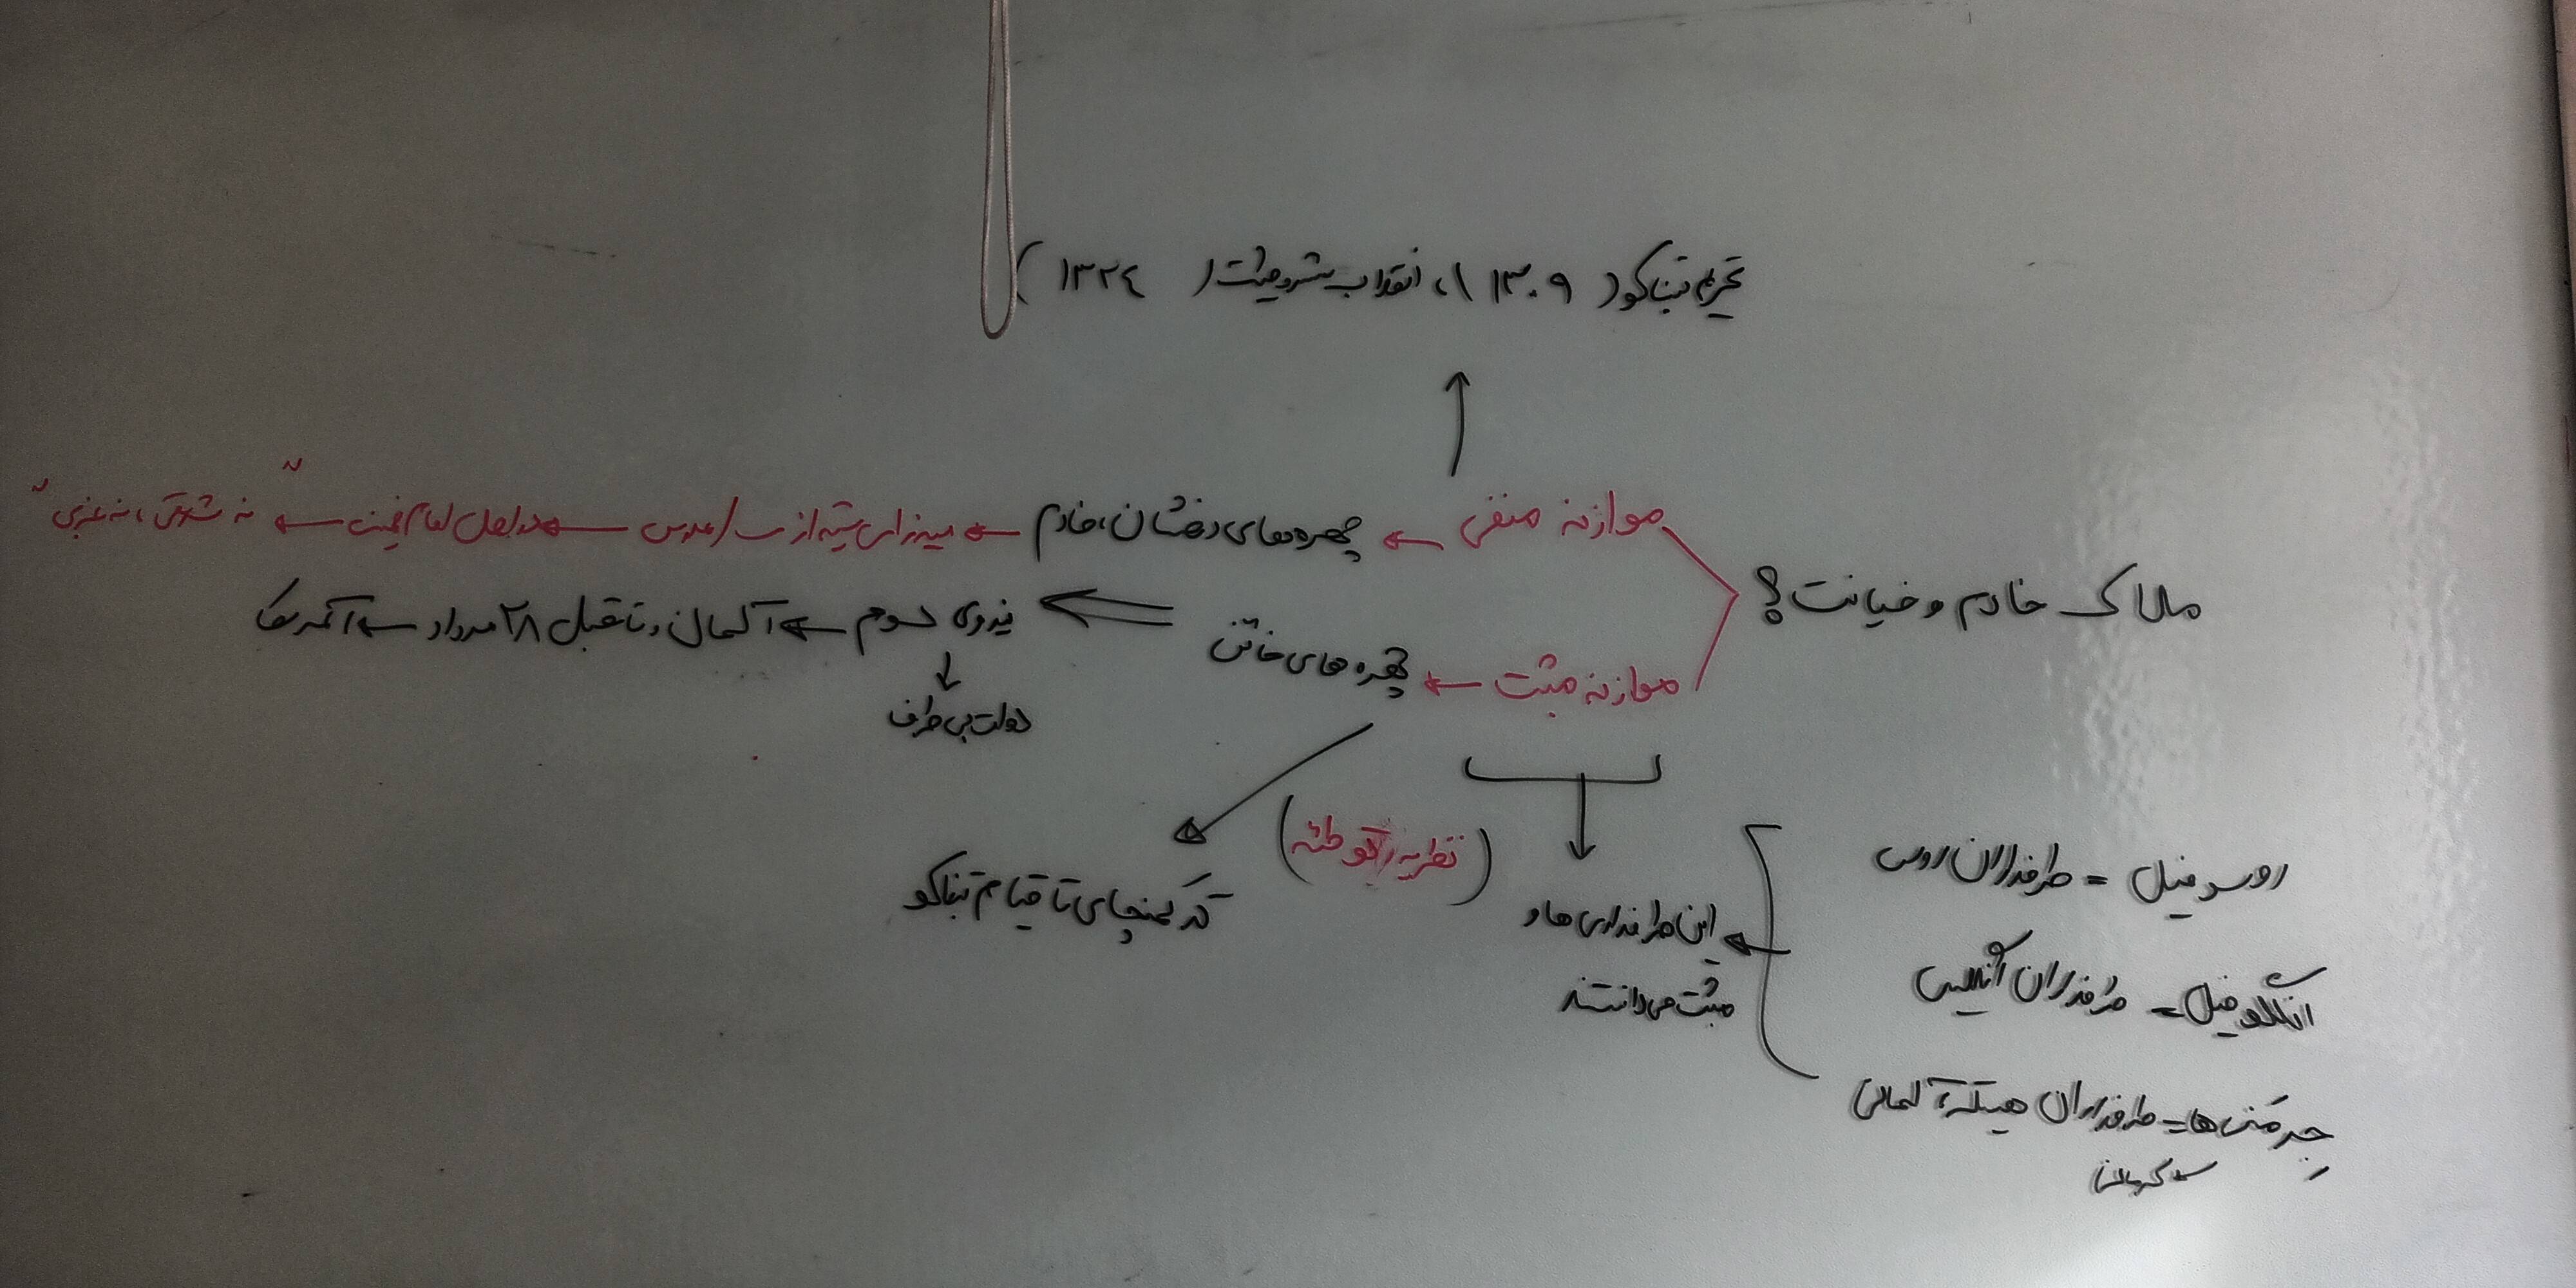 تحریم تنباکو (۱۳۰۹)، انقلاب مشروطیت (۱۳۲٤)
ملاک خادم و خیانت؟
موازنه منفی ← چهره‌های درخشان، خادم ← میرزای شیرازی / مدرس ← امام خمینی ← "نه شرقی، نه غربی"
موازنه مثبت ← چهره های خائن ⇐ نیروی سوم ← آلمان، تا قبل ۲۸ مرداد ← آمریکا
↓ دولت بی طرف
ترکمنچای تا قیام تنباکو
(نظریه توطئه)
روسوفیل = طرفداران روس
انگلوفیل = طرفداران انگلیس
جرمن ها = طرفداران هیتلر، آلمان
← این طرفداری ها و
مثبت می‌دانستند